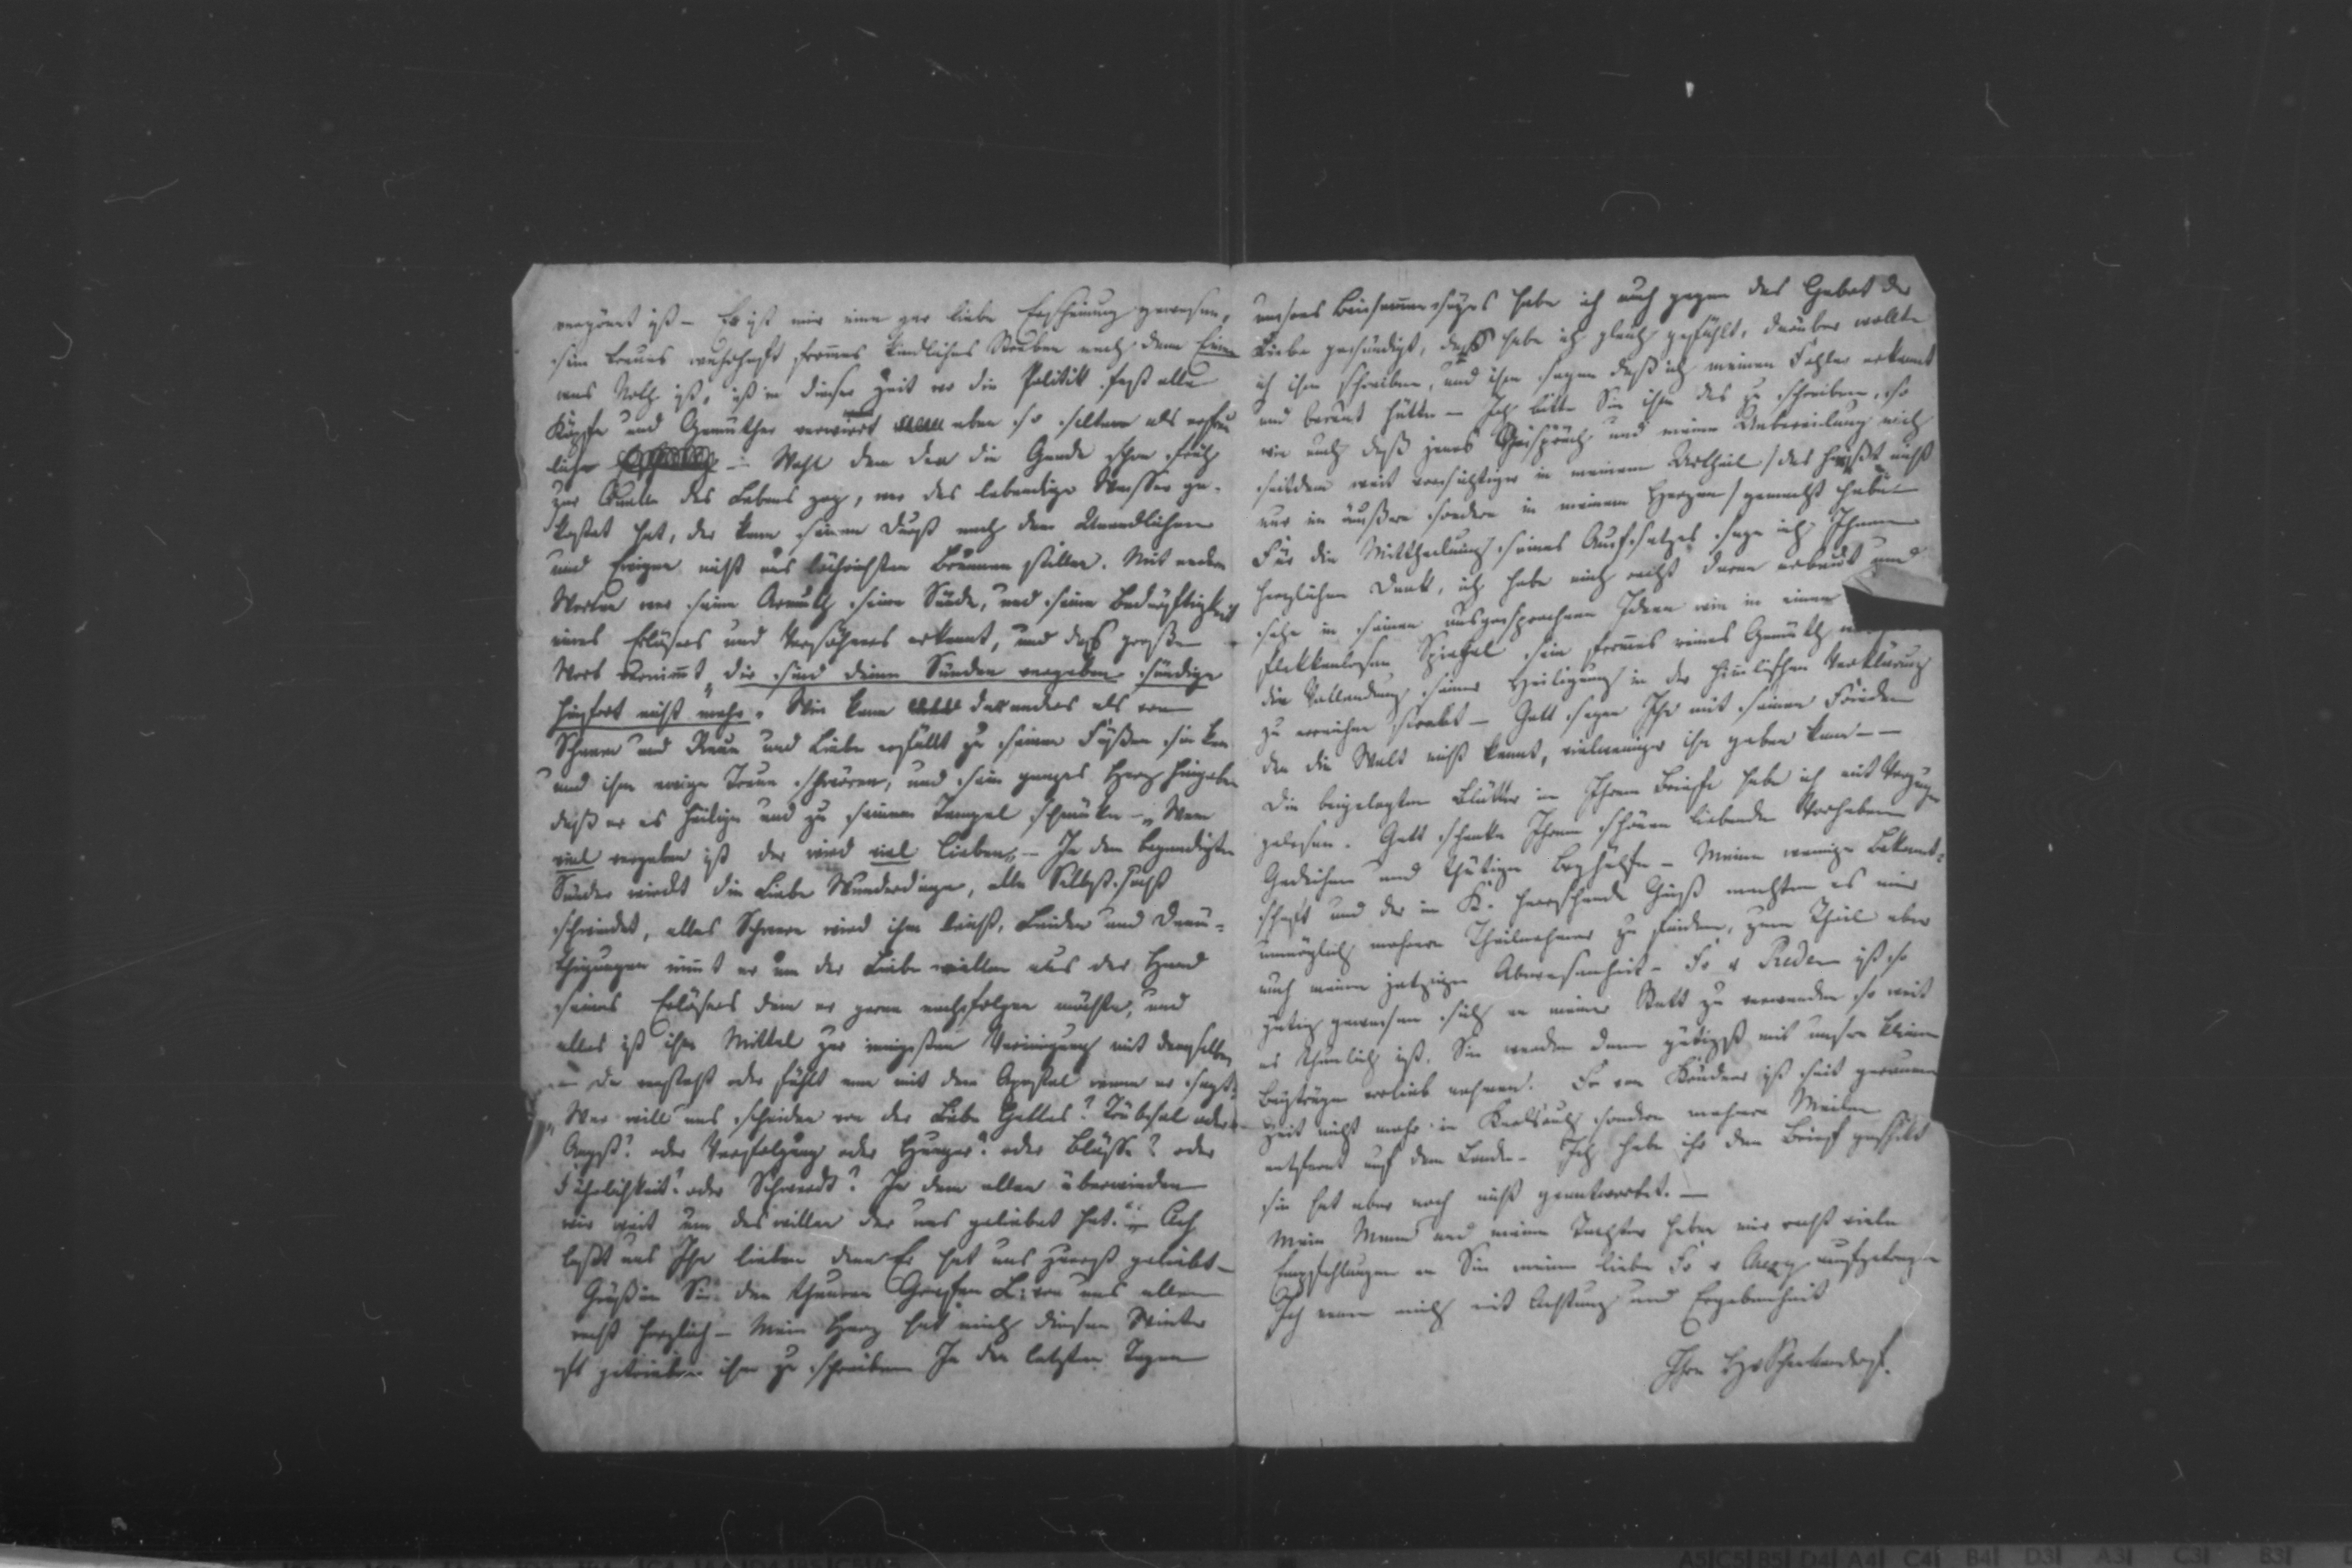 vergönnt ist – Er ist mir eine gar liebe Erscheinung gewesen,
sein treues wahrhaft frommes kindliches Streben nach dem Einen
was Noth ist, ist in dieser Zeit wo die Politik fast alle
Köpfe und Gemüther verwirrt eben so selten als erfreu
liche – Wohl dem den die Gnade schon früh
zur Quelle des Lebens zog, wer das lebendige Wasser ge-
kostet hat, der kann seinen Durst nach dem Unendlichen
und Ewigen nicht aus löchrichten Brunnen stillen. Mit andern
Worten wer seine Armuth seine Sünde, und seine Bedürftigkeit
eines Erlösers und Versöhners erkennt, und das große
Wort vernimt „dir sind deine Sünden vergeben sündige
hinfort nicht mehr. Wie kann der anders als von
Scham und Reue und Liebe erfüllt zu seinen Füßen sinken
und ihm ewige Treue schwören, und sein ganzes Herz hingeben
daß er es heilige und zu seinem Tempel schmücke – „Wem
viel vergeben ist der wird viel lieben„ – In dem begnadigten
Sünder wirckt die Liebe Wunderdinge, alle Selbstsucht
schwindet, alles Schwere wird ihm leicht, Leiden und Demü-
thigungen nimt er um der Liebe willen aus der Hand
seines Erlösers dem er gerne nachfolgen möchte, und
alles ist ihm Mittel zur innigsten Vereinigung mit demselben
– da versteht oder fühlt man mit dem Apostel wenn er sagt:
„Wer will uns scheiden von der Liebe Gottes? Trübsal oder
Angst? oder Verfolgung oder Hunger? oder Blöße? oder
Fährlichkeit? oder Schwerdt? In dem allen überwinden
wir weit um des willen der uns geliebet hat." – Ach
laßt uns Ihn lieben denn Er hat uns zuerst geliebt –
Grüßen Sie den theuren Grafen L: von uns allen
recht herzlich – Mein Herz hat mich diesen Winter
oft getrieben ihm zu schreiben In den letzten Tagen
unsers Beisammenseyns habe ich auch gegen das Gebot der
Liebe gesündigt, daß habe ich gleich gefühlt, darüber wollte
ich ihm schreiben, und ihm sagen daß ich meinen Fehler erkannt
und bereut hätte – Ich bitte Sie ihm das zu schreiben, so
wie auch daß jenes Gespräch und meine Uebereilung mich
seitdem weit vorsichtiger in meinem Urtheil / das heißt nicht
nur im äußern sondern in meinem Herzen / gemacht habe –
Für die Mittheilung seines Aufsatzes sage ich Ihnen
herzlichen Dank, ich habe mich recht daran erbaut und
sehe in seinen ausgesprochenen Ideen wie in einem
fleckenlosen Spiegel sein frommes reines Gemüth
die Vollendung seiner Heiligung in der himlischen Verklärung
zu erreichen strebt – Gott segne Ihn mit seinem Frieden
den die Welt nicht kennt, vielweniger ihn geben kann – –
Die beigelegten Blätter in Ihrem Briefe habe ich mit Vergnügen
gelesen. Gott schenke Ihrem schönen liebenden Vorhaben
Gedeihen und thätige Beyhülfe – Meine wenige Bekannt-
schaft und der in K. herrschende Geist machten es mir
unmöglich mehrere Theilnehmer zu finden, zum Theil aber
auch meine jetzige Abwesenheit – Fr v Reden ist so
gütig gewesen sich an meiner Statt zu verwenden so weit
es thunlich ist. Sie werden dann gütigst mit unsren kleinen
Beyträgen vorlieb nehmen. Fr von Krüdner ist seit geraumer
Zeit nicht mehr in Karlsruh sondern mehrere Meilen
entfernt auf dem Lande – Ich habe ihr den Brief geschikt
sie hat aber noch nicht geantwortet. –
Mein Mann und meine Tochter haben mir recht viele
Empfehlungen an Sie meine liebe Fr v aufgetragen
Ich nenne mich mit Achtung und Ergebenheit
Ihre HvSchenkendorf.